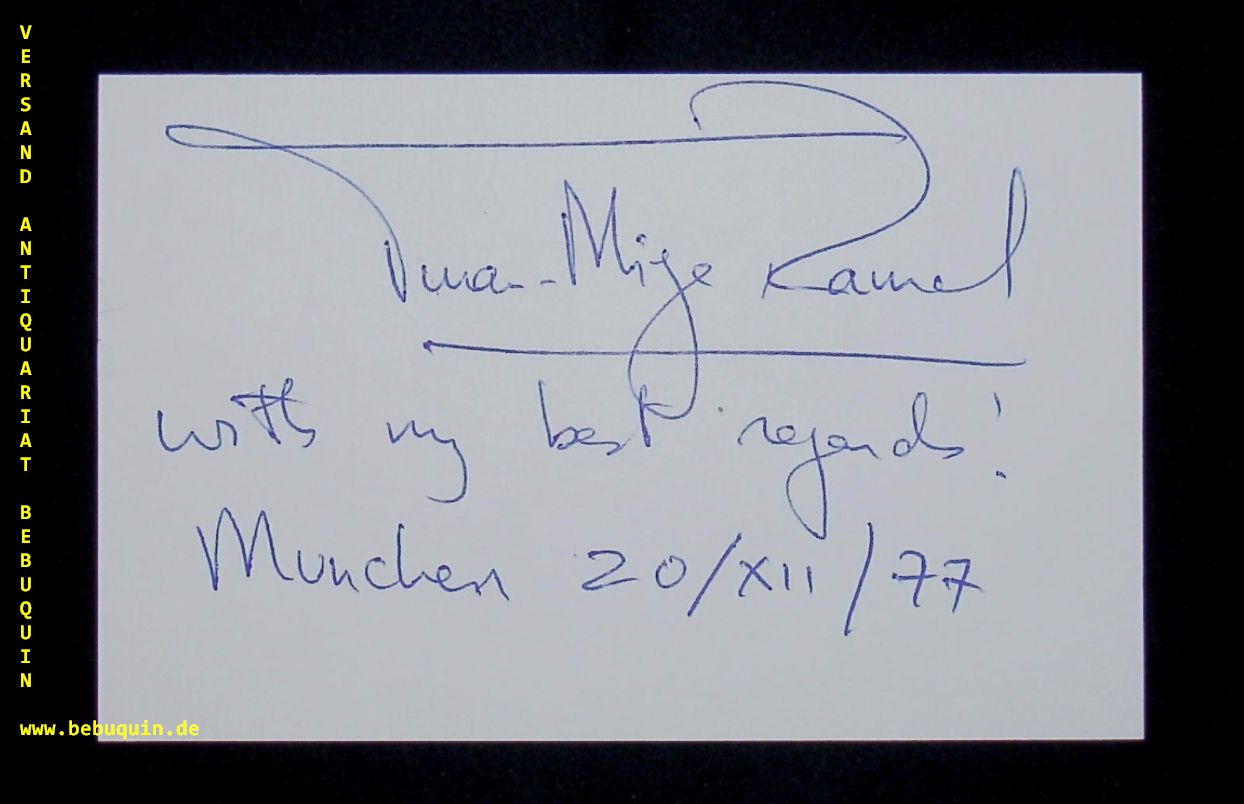 VERSAND ANTIQUARIAT BEBUQUIN
with my best regards!
Munchen 20/XII/77
www.bebuquin.de